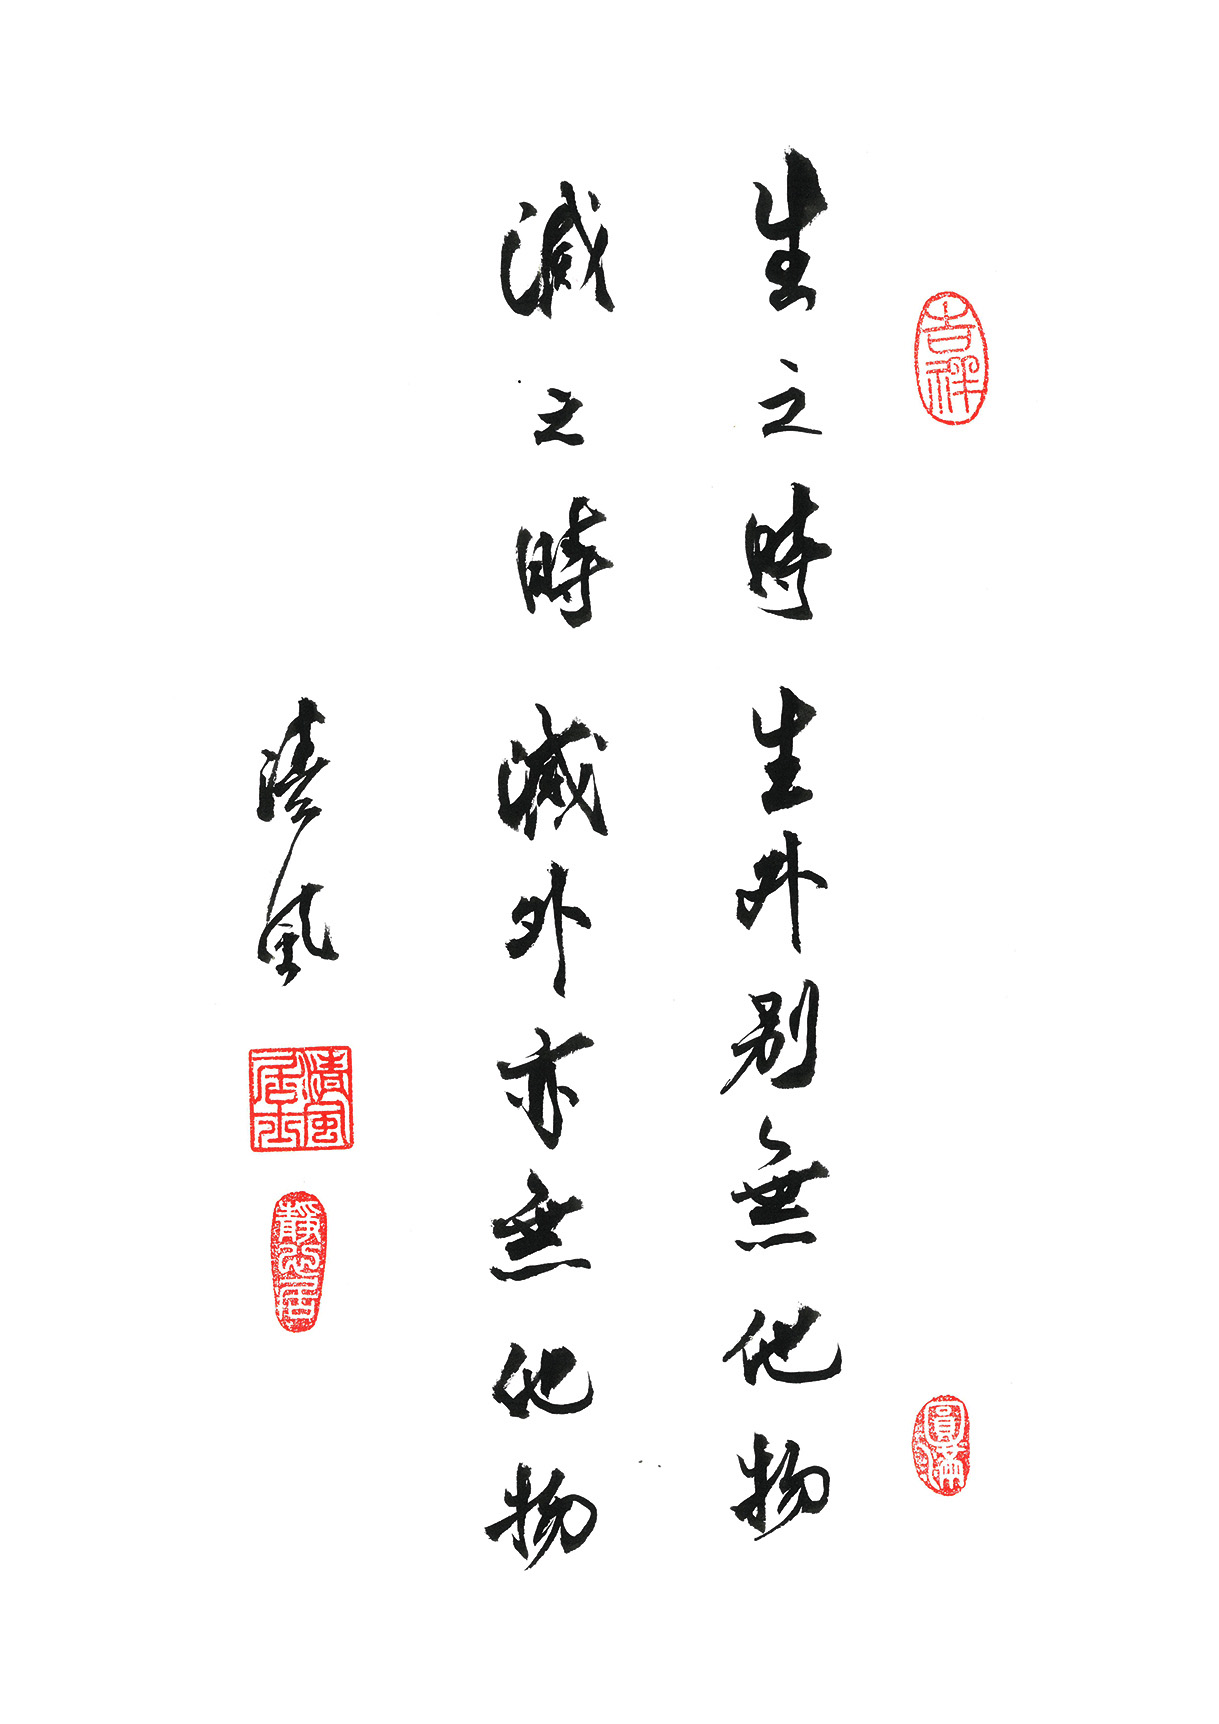 吉祥
生之時生外別無他物
圓滿
滅之時滅外亦無他物
清風
清風居士
靜心居